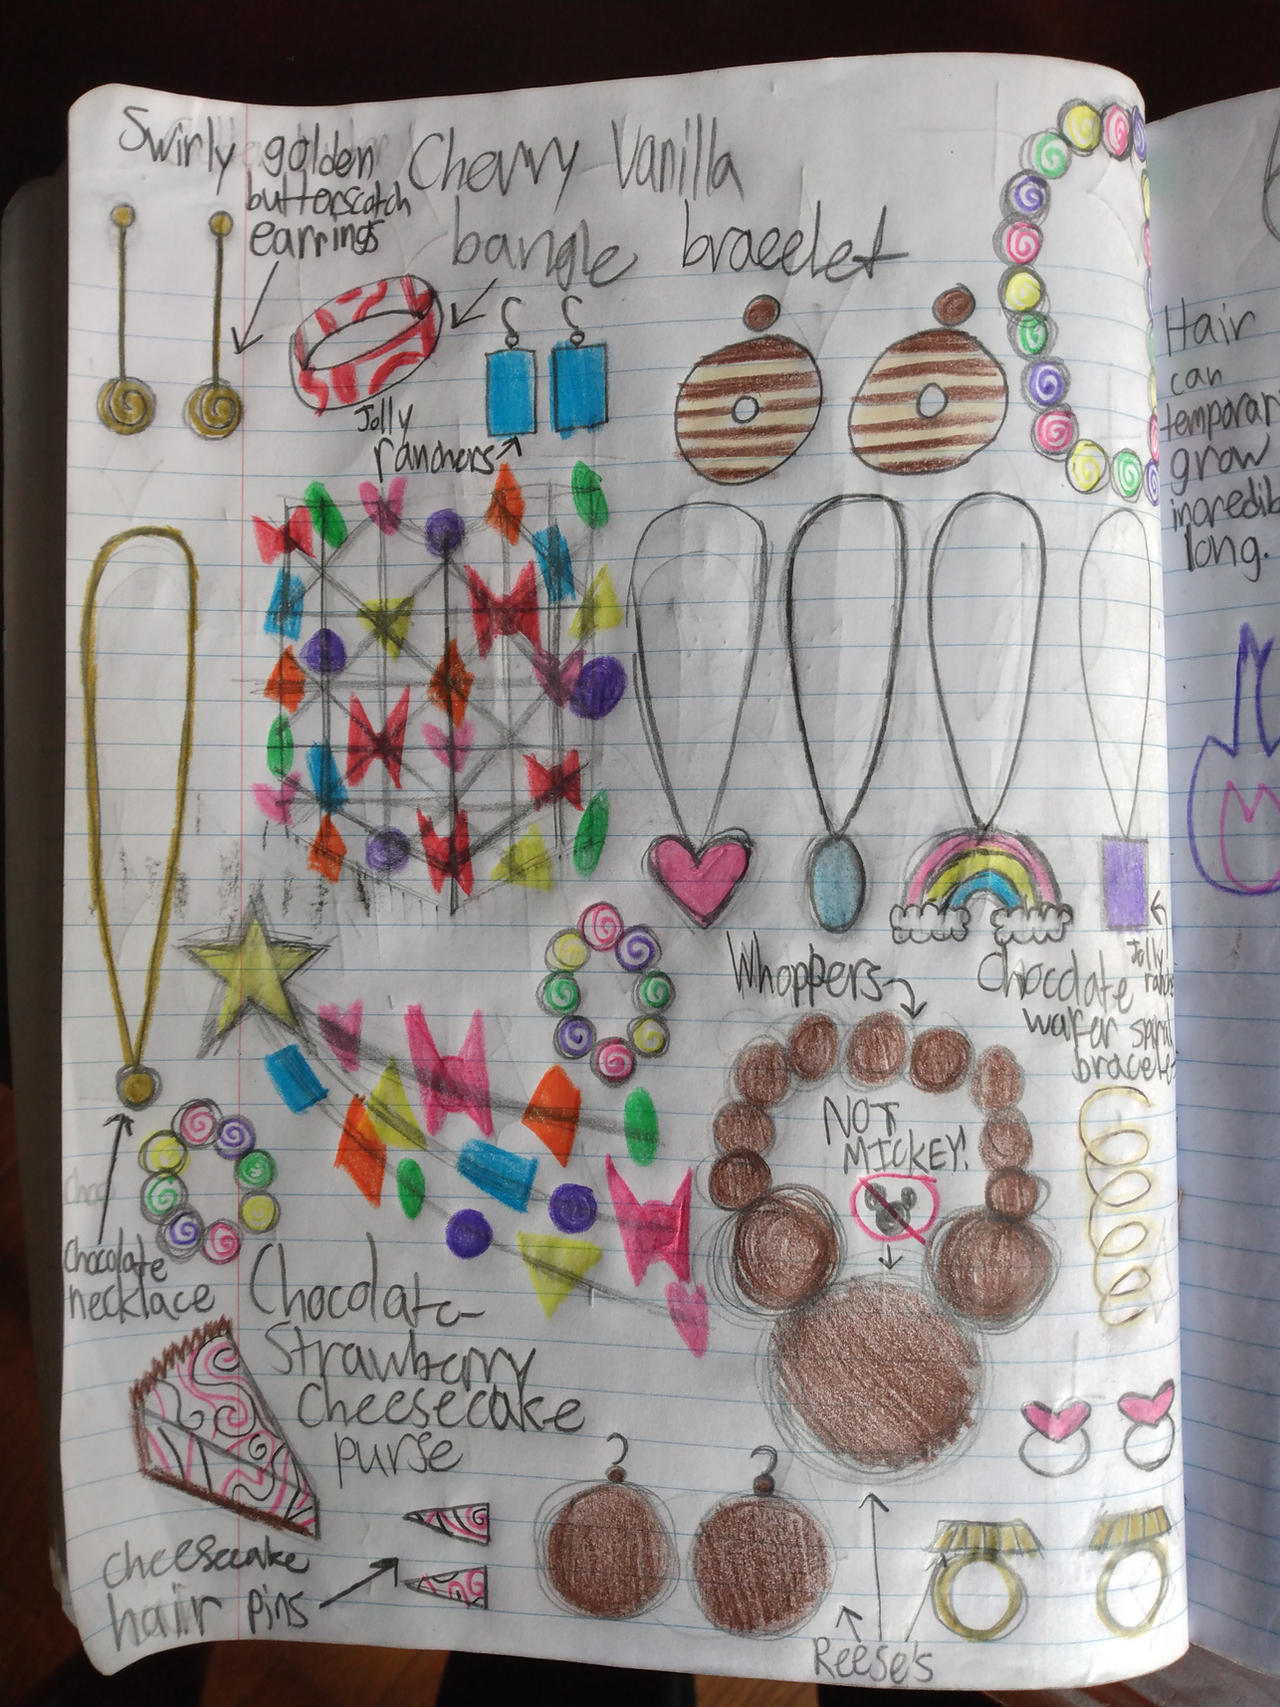 Swirly golden
butterscotch
earrings
Cherry Vanilla
bangle bracelet
Jolly
ranchers
Hair
can
temporar
grow
incredib
long.
Whoppers
Chocolate
wafer spiral
bracelet
Jolly
NOT
MICKEY!
Choc
Chocolate
necklace
Chocolate
Strawberry
Cheesecake
purse
cheesecake
hair pins
Reese's